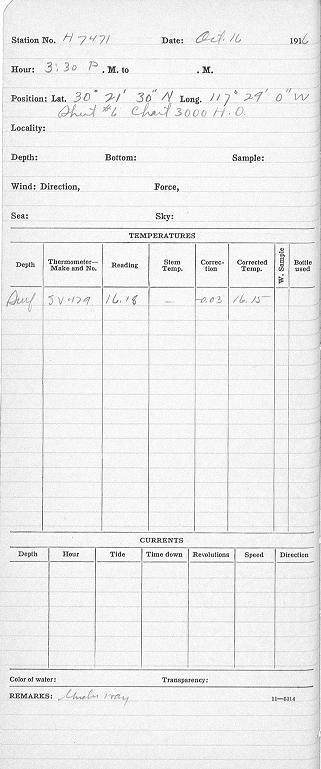 Station No. H7471 Date: Oct. 16 1916
Hour: 3:30 P. M. to . M.
Position: Lat. 30° 21' 30" N Long. 117° 29' 0" W
Sheet #6 Chart 3000 H.O.
Locality:
Depth: Bottom: Sample:
Wind: Direction, Force,
Sea: Sky:
TEMPERATURES
Depth Thermometer—Make and No. Reading Stem Temp. Correction Corrected Temp. W. Sample Bottle used
Surf SV-179 16.18 — -0.03 16.15
CURRENTS
Depth Hour Tide Time down Revolutions Speed Direction
Color of water: Transparency:
REMARKS: Under way 11—6314